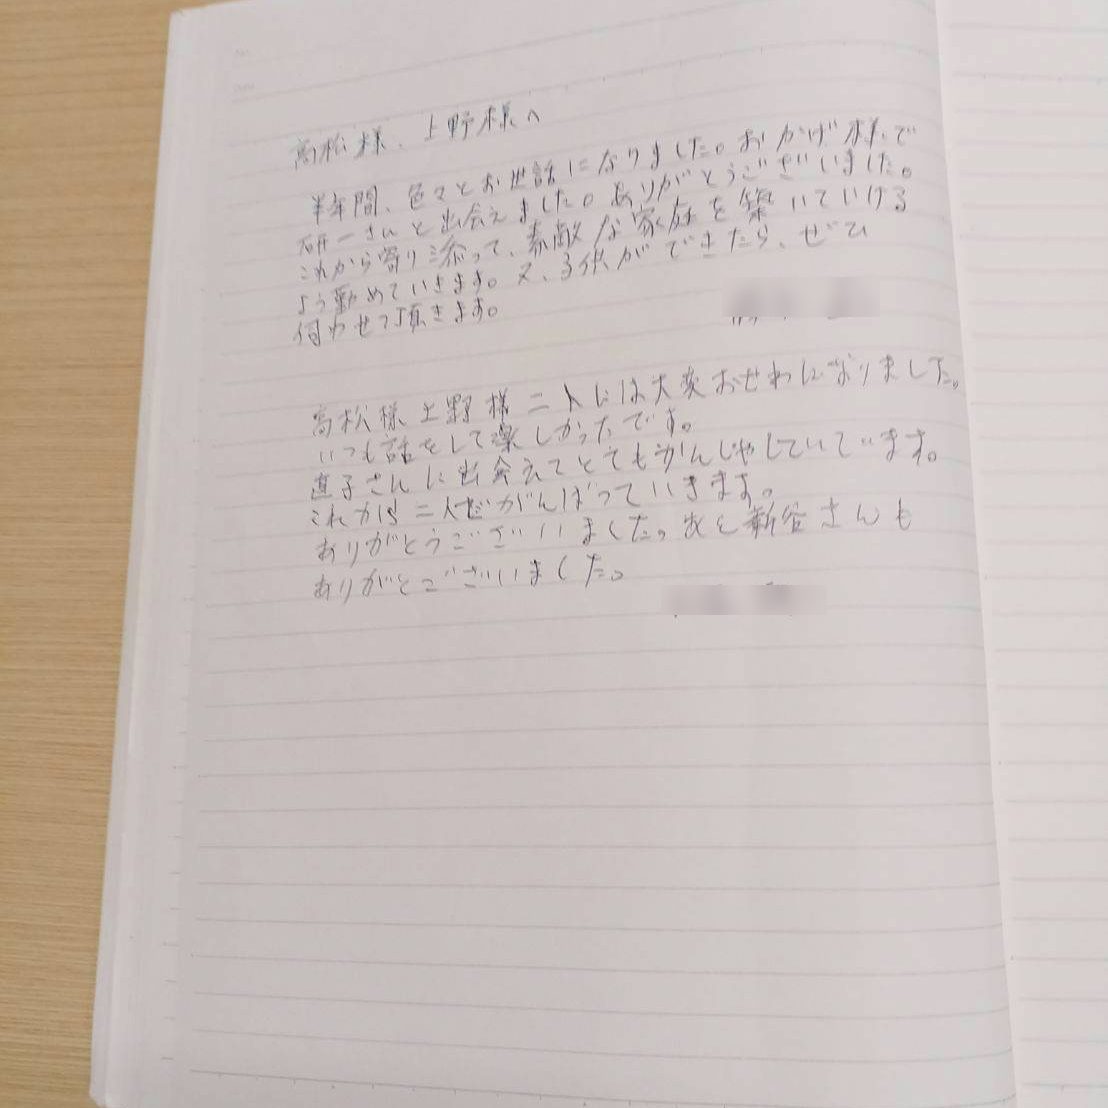 高松様、上野様へ
半年間、色々とお世話になりました。おかげ様で
研一さんと出会えました。ありがとうございました。
これから寄り添って、素敵な家庭を築いていける
よう勤めていきます。又、子供ができたら、ぜひ
伺わせて頂きます。
高松様上野様二人には大変おせわになりました。
いつも話をして楽しかったです。
直子さんに出会えてとてもかんしゃしていています。
これから二人でがんばっていきます。
ありがとうございました。あと新谷さんも
ありがとございました。